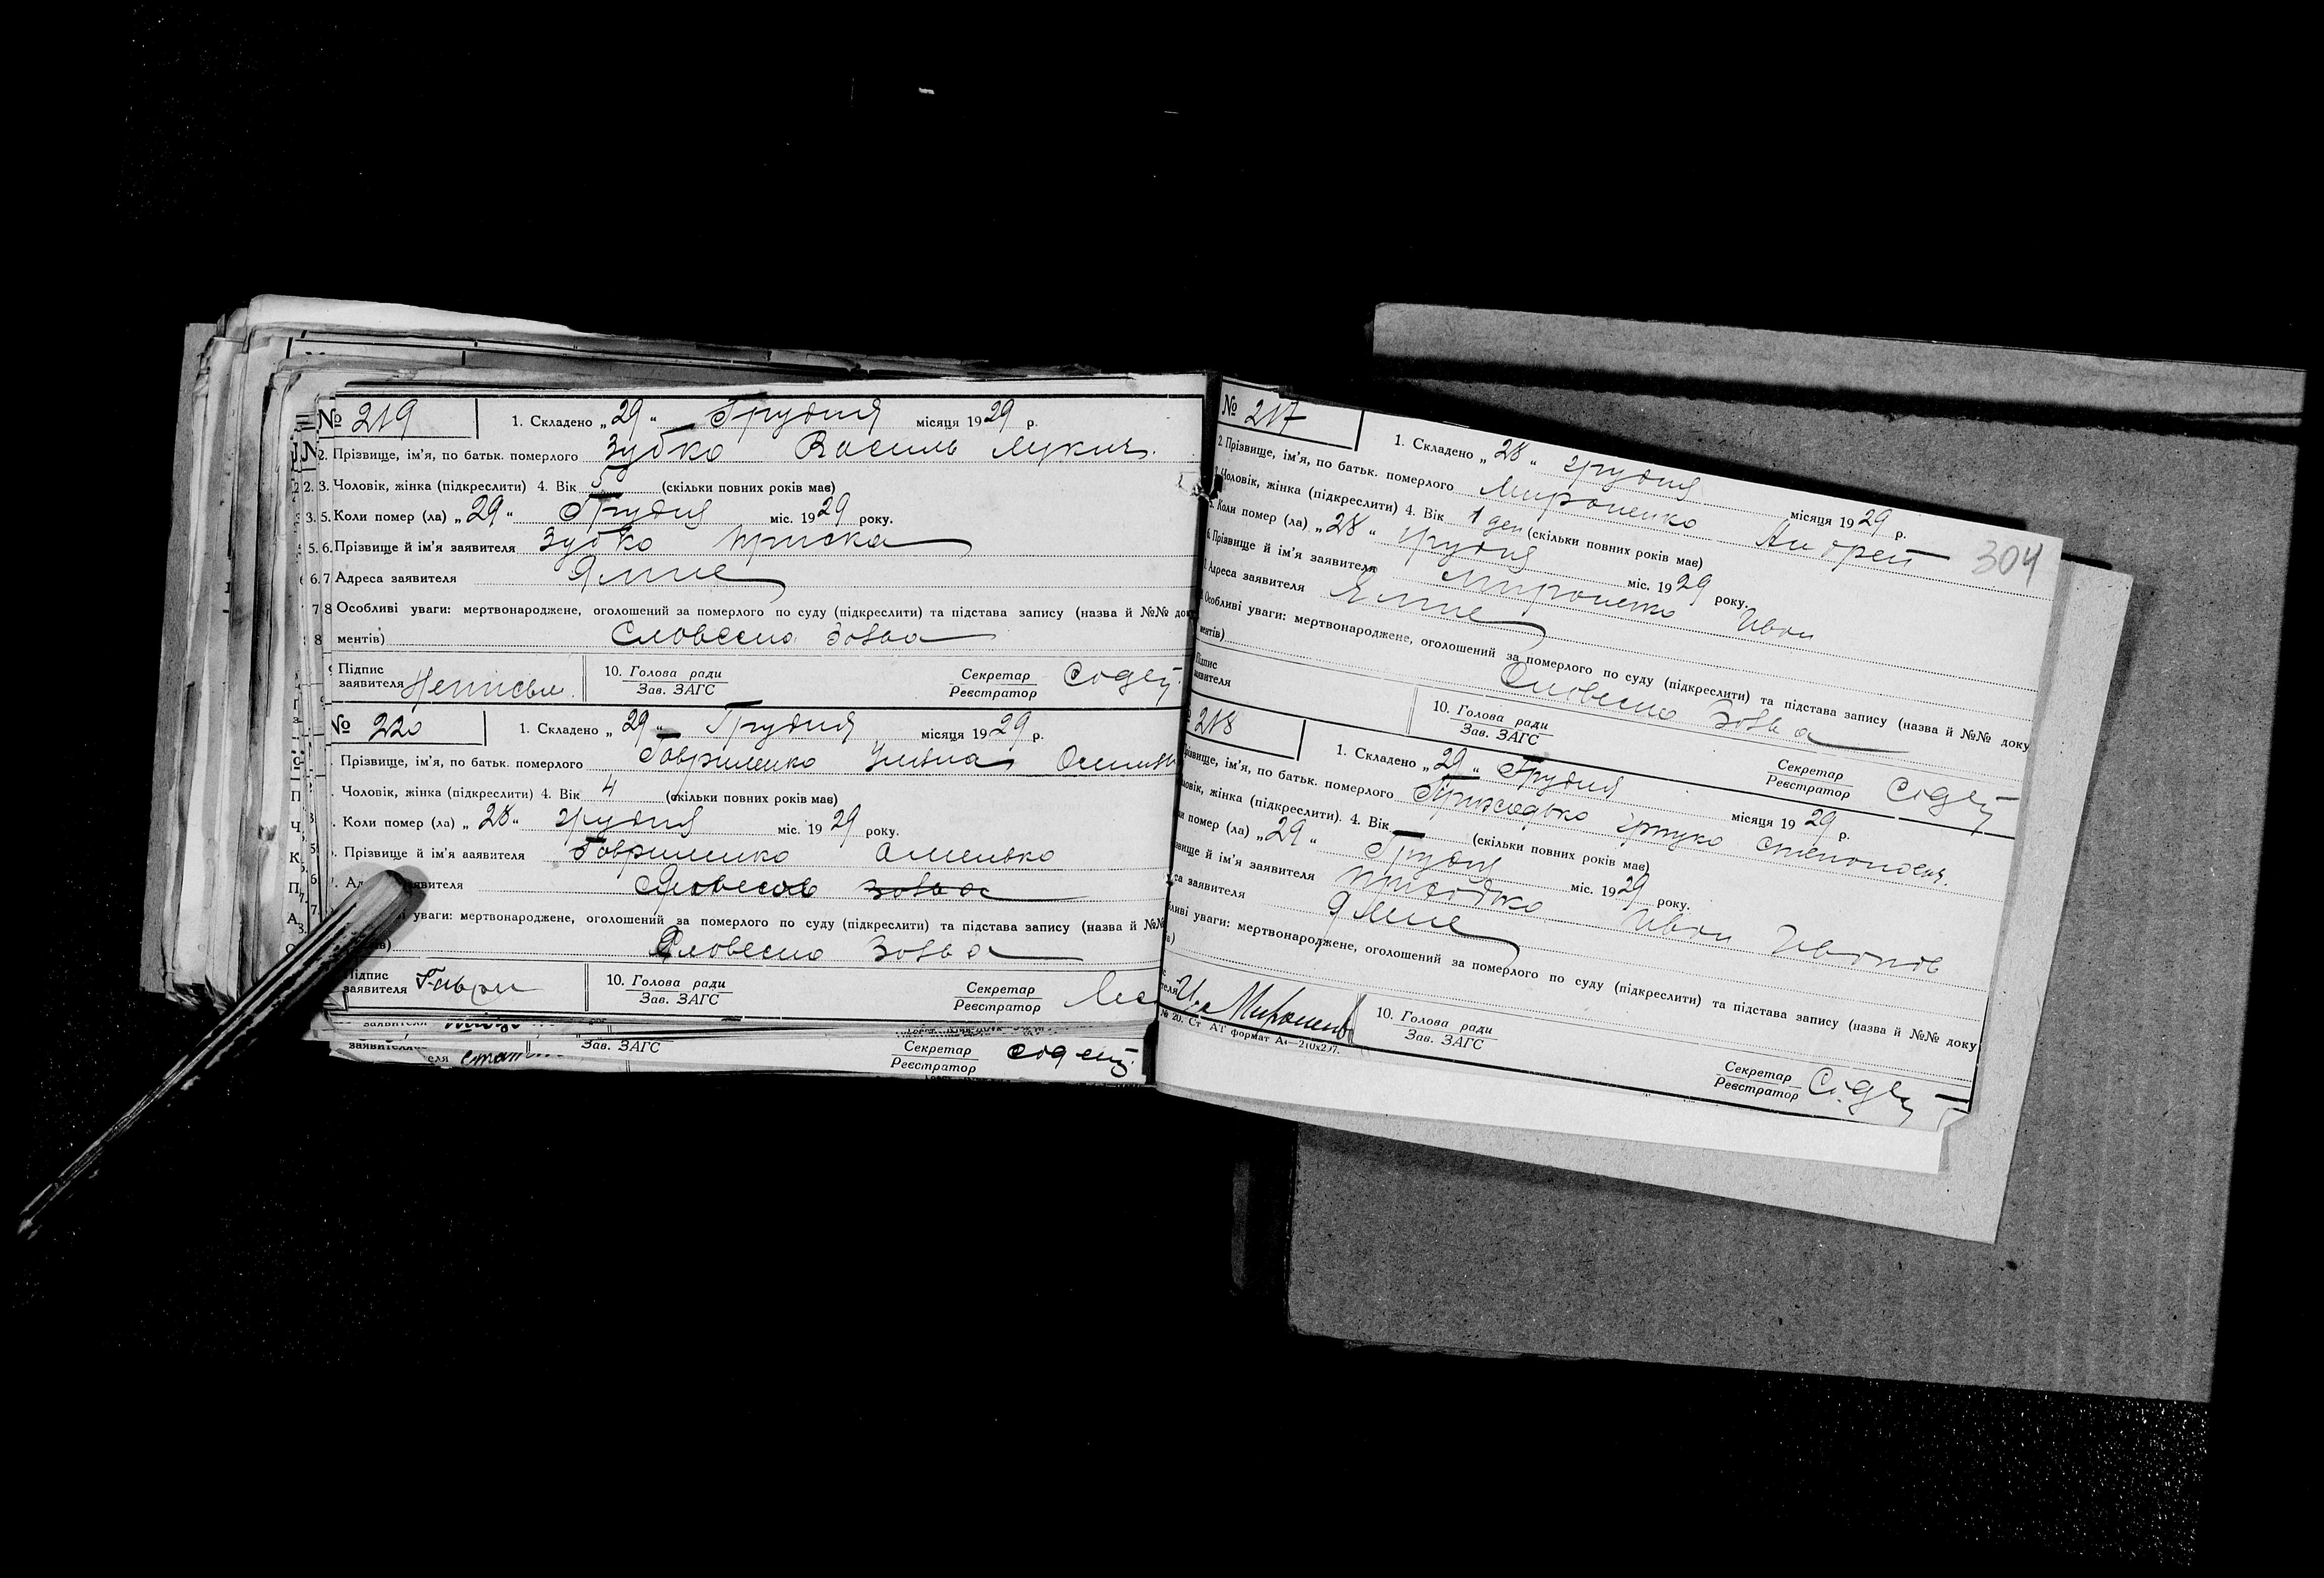 № 219 1. Складено „29“ Грудня місяця 1929 р.
2. Прізвище, ім'я, по батьк. померлого Зубко Василь Лукич.
3. Чоловік, жінка (підкреслити) 4. Вік 5 (скільки повних років має)
5. Коли помер (ла) „29“ Грудня міс. 1929 року.
6. Прізвище й ім'я заявителя Зубко Приска
7 Адреса заявителя Ямпе
8 Особливі уваги: мертвонароджене, оголошений за померлого по суду (підкреслити) та підстава запису (назва й №№ доку
ментів) Словесна Зовва
Підпис заявителя Неписьм. 10. Голова ради Зав. ЗАГС Секретар Реєстратор
№ 220 1. Складено „29“ Грудня місяця 1929 р.
Прізвище, ім'я, по батьк. померлого Гавриленко Уляна
Чоловік, жінка (підкреслити) 4. Вік 4 (скільки повних років має)
Коли помер (ла) „28“ грудня міс. 1929 року.
Прізвище й ім'я заявителя Гавриленко Омелько
Словесно зовва
уваги: мертвонароджене, оголошений за померлого по суду (підкреслити) та підстава запису (назва й №№
Словесно Зовва
Підпис заявителя Гаври 10. Голова ради Зав. ЗАГС Секретар Реєстратор
Зав. ЗАГС Секретар Реєстратор
304
№ 217 1. Складено „28“ грудня місяця 1929 р.
2. Прізвище, ім'я, по батьк. померлого Мироненко Андрей
Чоловік, жінка (підкреслити) 4. Вік 1 ден (скільки повних років має)
Коли помер (ла) „28“ грудня міс. 1929 року.
Прізвище й ім'я заявителя Мироненко Иван
Адреса заявителя Ямпе
Особливі уваги: мертвонароджене, оголошений за померлого по суду (підкреслити) та підстава запису (назва й №№ доку
ментів) Словесно Зовва
Підпис заявителя 10. Голова ради Зав. ЗАГС Секретар Реєстратор
218 1. Складено „29“ Грудня місяця 1929 р.
Прізвище, ім'я, по батьк. померлого Приходько
жінка (підкреслити). 4. Вік — (скільки повних років має)
помер (ла) „29“ Грудня міс. 1929 року.
й ім'я заявителя Приходько Иван Иванов
заявителя Ямпе
уваги: мертвонароджене, оголошений за померлого по суду (підкреслити) та підстава запису (назва й №№ доку
10. Голова ради Зав. ЗАГС Секретар Реєстратор
№ 20. Ст АТ формат А4—210x297.